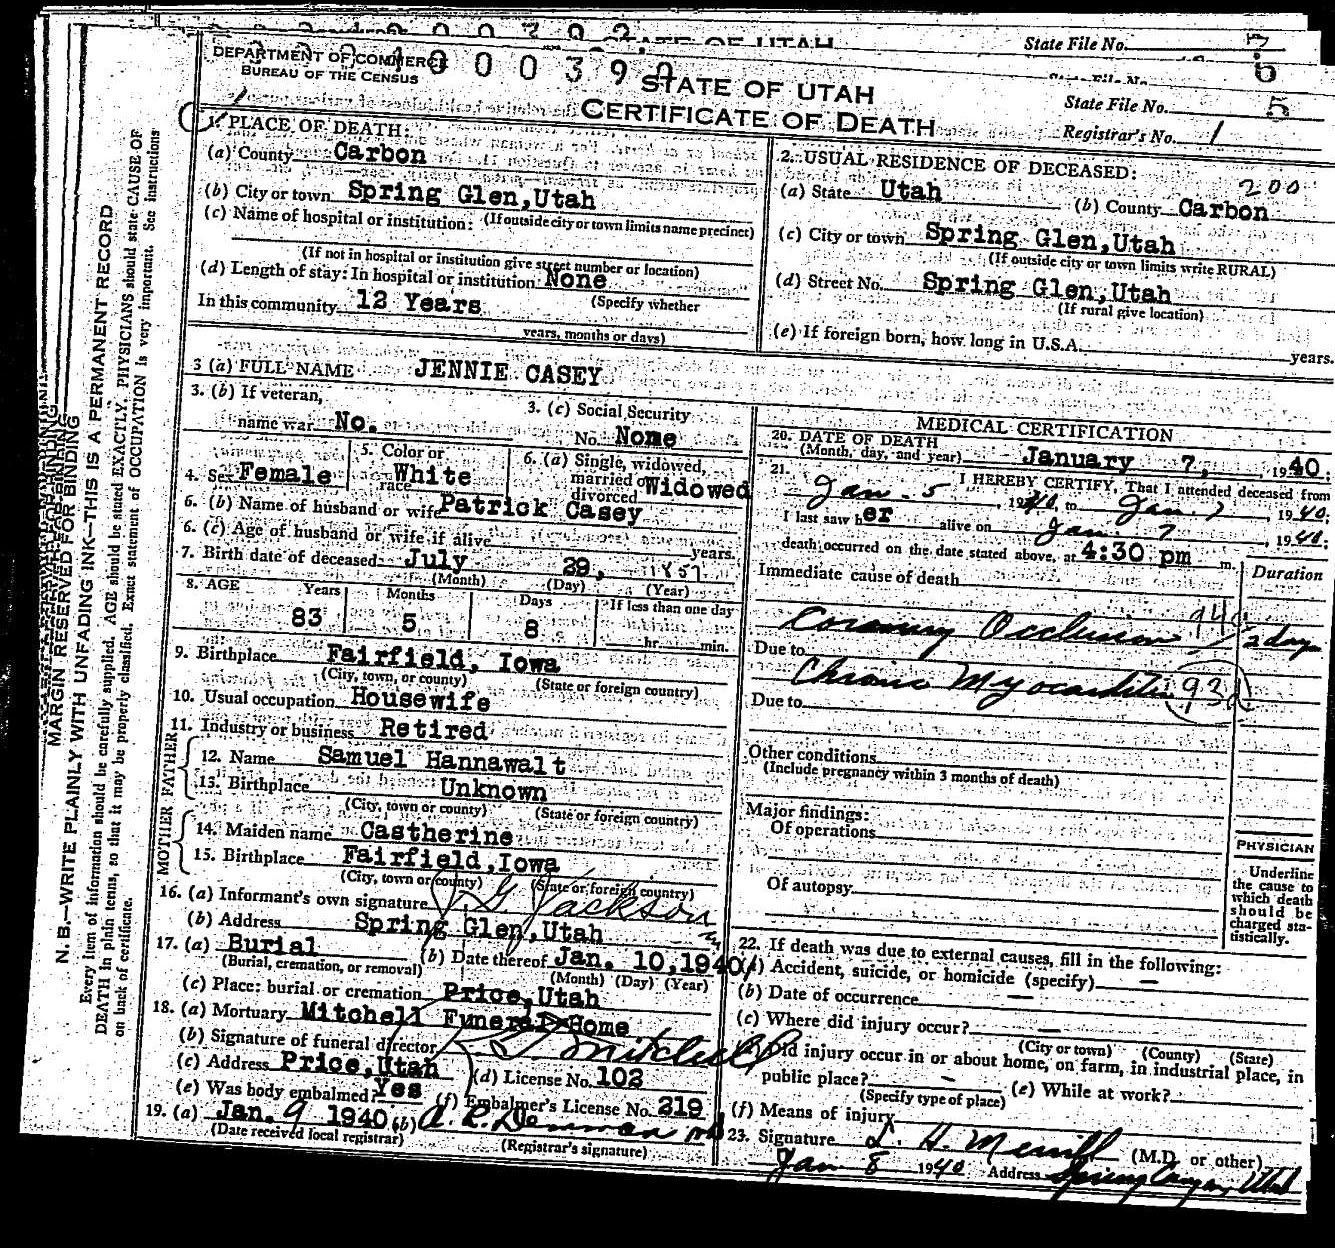 DEPARTMENT OF COMMERCE
BUREAU OF THE CENSUS
STATE OF UTAH
CERTIFICATE OF DEATH
State File No.
State File No.
Registrar's No. 1
1. PLACE OF DEATH:
(a) County Carbon
(b) City or town Spring Glen,Utah
(c) Name of hospital or institution: (If outside city or town limits name precinct)
(If not in hospital or institution give street number or location)
(d) Length of stay: In hospital or institution None
In this community 12 Years (Specify whether
years, months or days)
2. USUAL RESIDENCE OF DECEASED:
200
(a) State Utah (b) County Carbon
(c) City or town Spring Glen,Utah
(If outside city or town limits write RURAL)
(d) Street No. Spring Glen,Utah
(If rural give location)
(e) If foreign born, how long in U.S.A. years.
3 (a) FULL NAME JENNIE CASEY
3. (b) If veteran,
name war No.
3. (c) Social Security
No. None
4. Sex Female
5. Color or
race White
6. (a) Single, widowed,
married or
divorced Widowed
6. (b) Name of husband or wife Patrick Casey
6. (c) Age of husband or wife if alive years.
7. Birth date of deceased July 29, 1857
(Month) (Day) (Year)
8. AGE Years Months Days If less than one day
83 5 8 hr. min.
9. Birthplace Fairfield, Iowa
(City, town, or county) (State or foreign country)
10. Usual occupation Housewife
11. Industry or business Retired
FATHER
12. Name Samuel Hannawalt
13. Birthplace Unknown
(City, town or county) (State or foreign country)
MOTHER
14. Maiden name Castherine
15. Birthplace Fairfield,Iowa
(City, town or county) (State or foreign country)
16. (a) Informant's own signature J. G Jackson
(b) Address Spring Glen,Utah
17. (a) Burial (b) Date thereof Jan. 10,1940
(Burial, cremation, or removal) (Month) (Day) (Year)
(c) Place: burial or cremation Price,Utah
18. (a) Mortuary Mitchell Funeral Home
(b) Signature of funeral director J Mitchell
(c) Address Price,Utah (d) License No. 102
(e) Was body embalmed? Yes (f) Embalmer's License No. 219
19. (a) Jan. 9 1940 (b) A. R. Demman md
(Date received local registrar) (Registrar's signature)
MEDICAL CERTIFICATION
20. DATE OF DEATH
(Month, day, and year) January 7, 1940.
21. I HEREBY CERTIFY, That I attended deceased from
Jan. 5, 1940, to Jan. 7 1940;
I last saw her alive on Jan. 7, 1940;
death occurred on the date stated above, at 4:30 pm m.
Duration
Immediate cause of death
Coronary Occlusion 94a 2 day
Due to
Chronic Myocarditis 93d
Due to
Other conditions
(Include pregnancy within 3 months of death)
Major findings:
Of operations
Of autopsy
PHYSICIAN
Underline
the cause to
which death
should be
charged sta-
tistically.
22. If death was due to external causes, fill in the following:
(a) Accident, suicide, or homicide (specify) —
(b) Date of occurrence —
(c) Where did injury occur? —
(City or town) (County) (State)
Did injury occur in or about home, on farm, in industrial place, in
public place? — (e) While at work?
(Specify type of place)
(f) Means of injury
23. Signature L. H. Merrill (M.D. or other)
Jan 8 1940 Address Spring Canyon Utah
MARGIN RESERVED FOR BINDING
N. B.—WRITE PLAINLY WITH UNFADING INK—THIS IS A PERMANENT RECORD
Every item of information should be carefully supplied. AGE should be stated EXACTLY. PHYSICIANS should state CAUSE OF
DEATH in plain terms, so that it may be properly classified. Exact statement of OCCUPATION is very important. See instructions
on back of certificate.